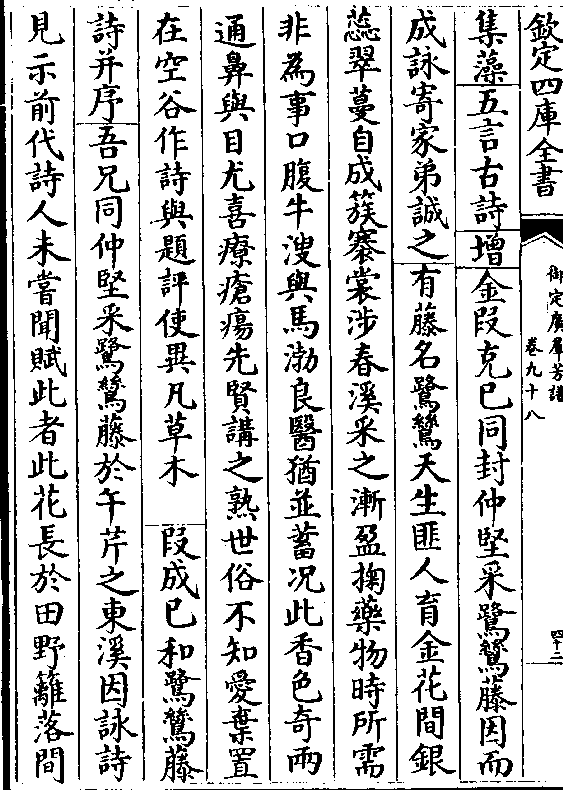 欽定四庫全書
御定廣羣芳譜
卷九十八
四十二
集藻五言古詩增金段克已同封仲堅采鷺鷥藤因而
成詠寄家弟誠之有藤名鷺鷥天生匪人育金花間銀
蕊翠蔓自成簇褰裳涉春溪采之漸盈掬藥物時所需
非為事口腹牛溲與馬渤良醫猶並蓄况此香色奇兩
通鼻與目尤喜療瘡瘍先賢講之熟世俗不知愛棄置
在空谷作詩與題評使異凡草木 段成已和鷺鷥藤
詩并序吾兄同仲堅采鷺鷥藤於午芹之東溪因詠詩
見示前代詩人未嘗聞賦此者此花長於田野籬落間